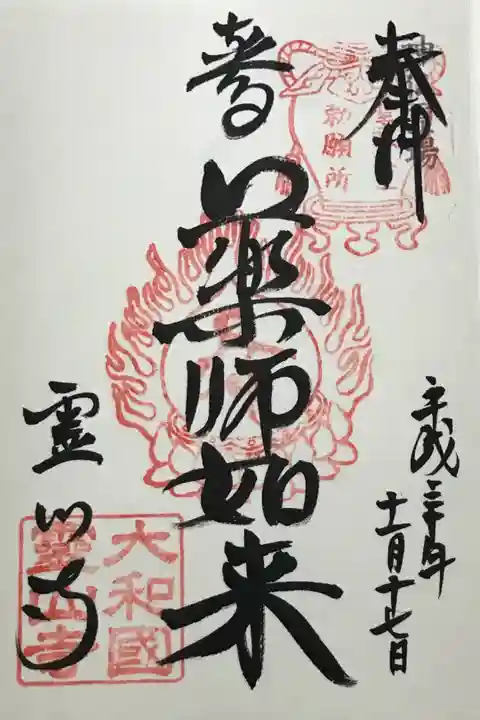 奉拝
勅願所
薬師如来
霊山寺
大和國
霊山寺
平成三十年
十一月十七日